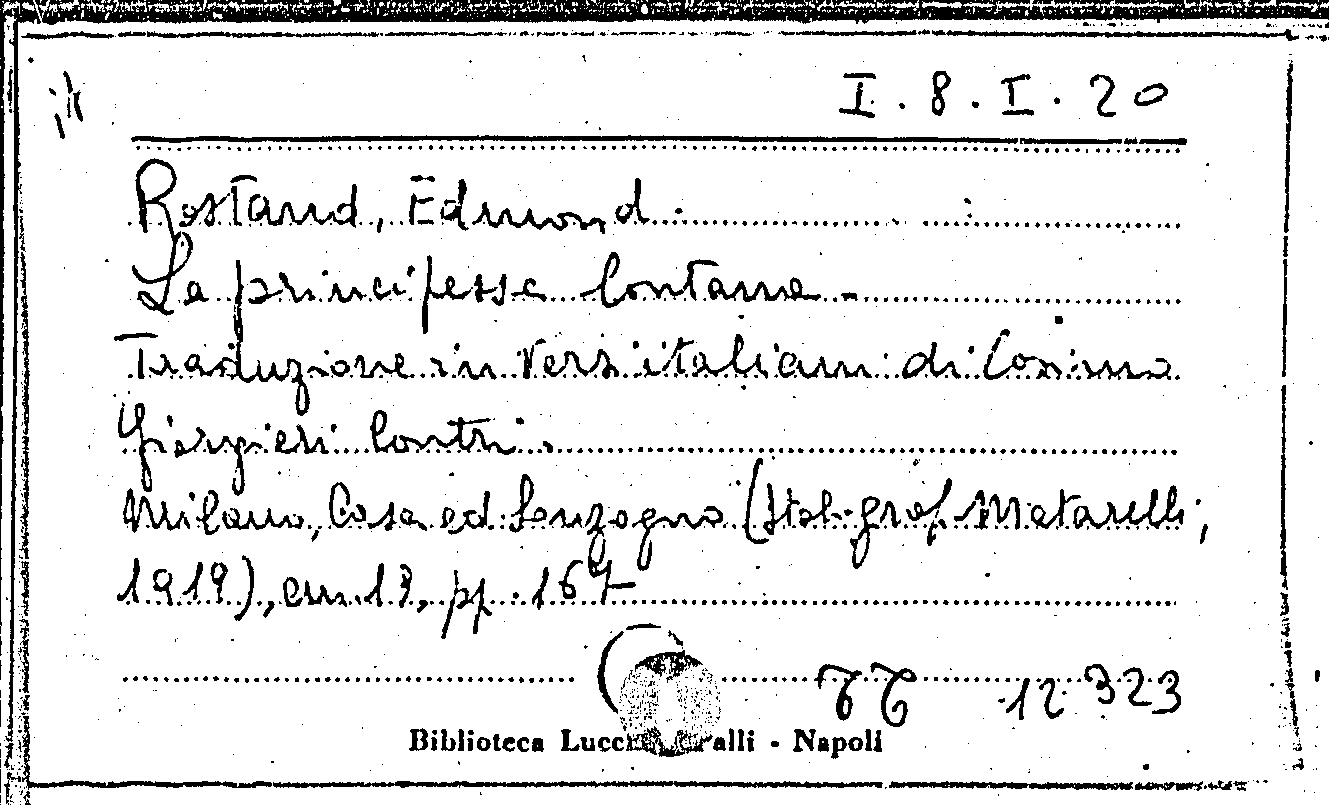 it
I. 8. I. 20
Rostand, Edmond.
La principessa lontana.
Traduzione in versi italiani di Cosimo
Giorgieri Contri.
Milano, Casa ed. Sonzogno (Stab. graf. Matarelli,
1919), cm. 19, pp. 167
12323
Biblioteca Lucchesi Palli - Napoli